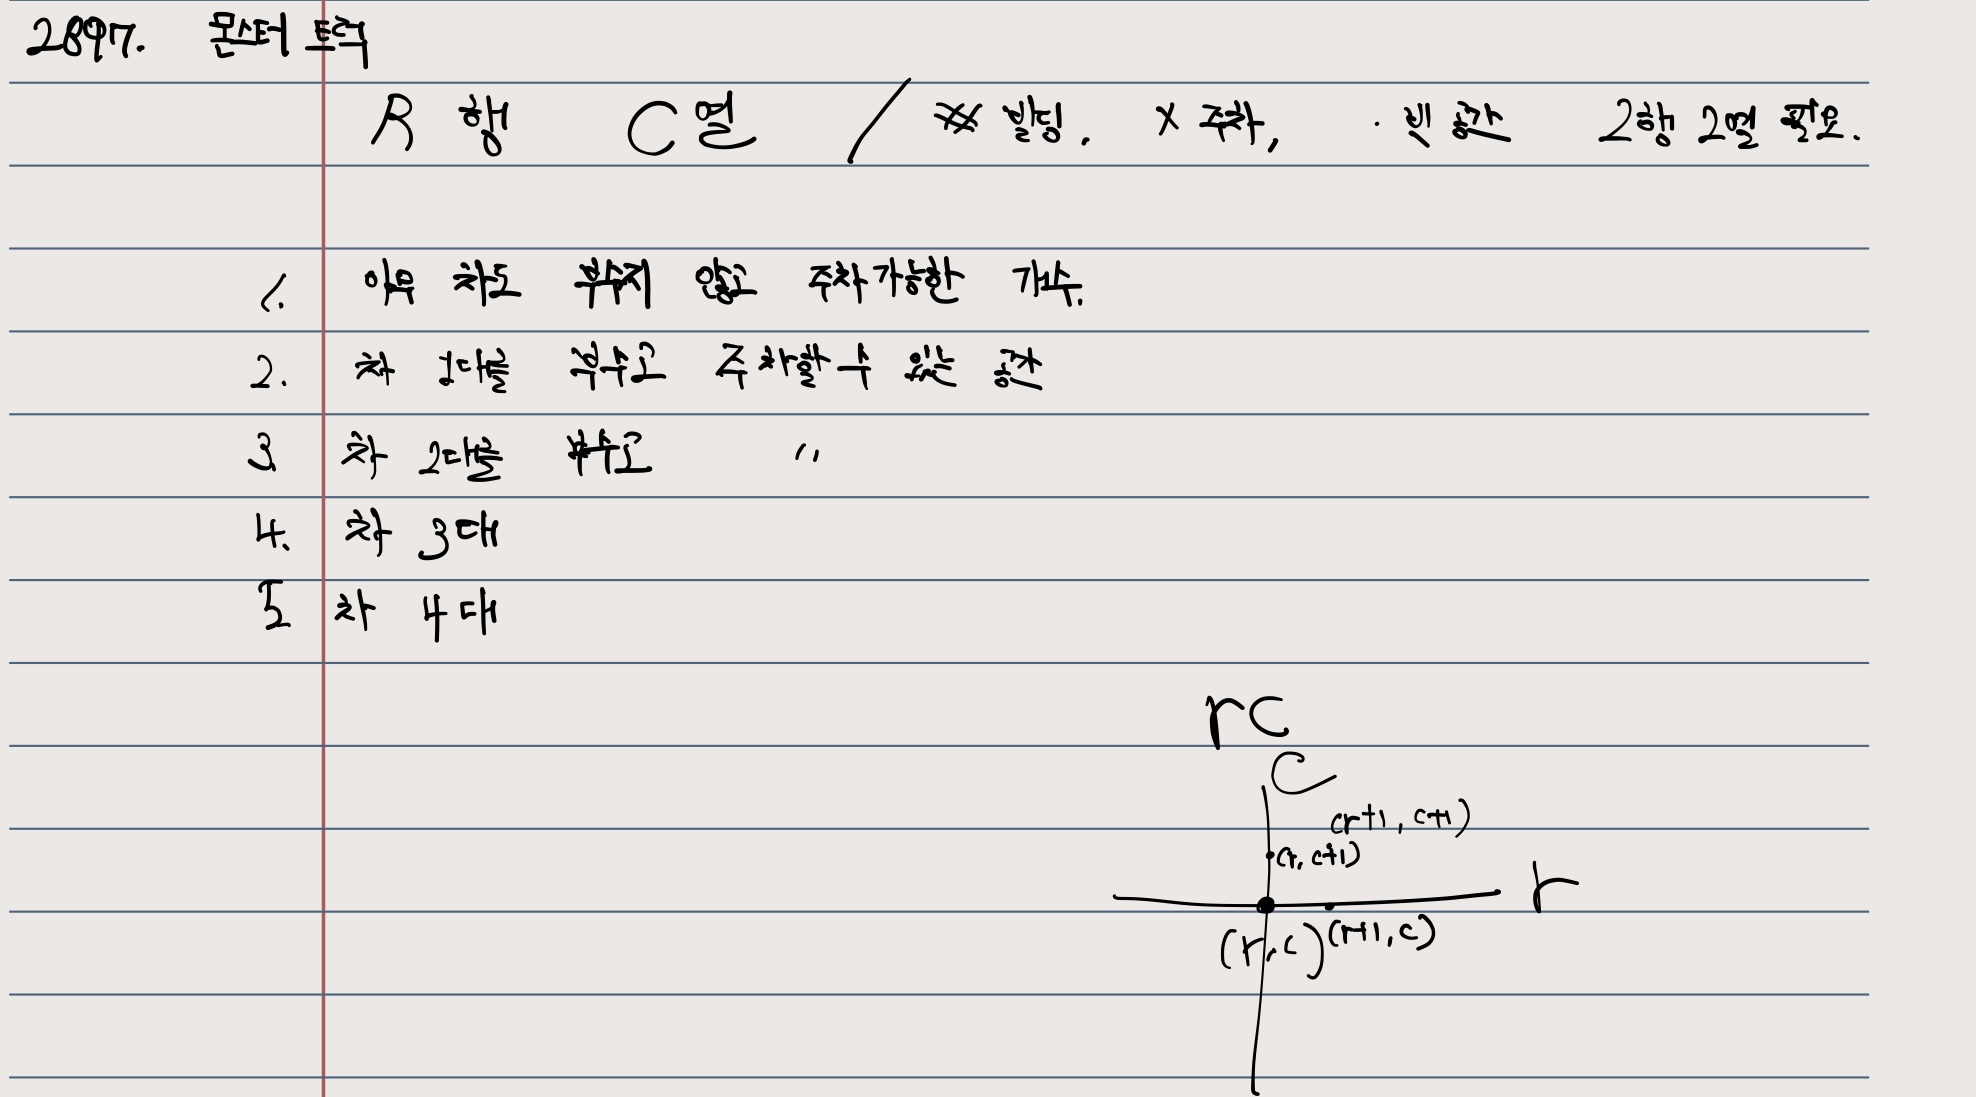 2897. 몬스터 트럭
R 행 C 열 / # 빌딩. X 주차, . 빈 공간 2행 2열 필요.
1. 아무 차도 부수지 않고 주차가능한 개수.
2. 차 1대를 부수고 주차할 수 있는 공간
3 차 2대를 부수고 〃
4. 차 3대
5 차 4대
rc
C
(r+1, c+1)
(r, c+1)
r
(r, c) (r+1, c)